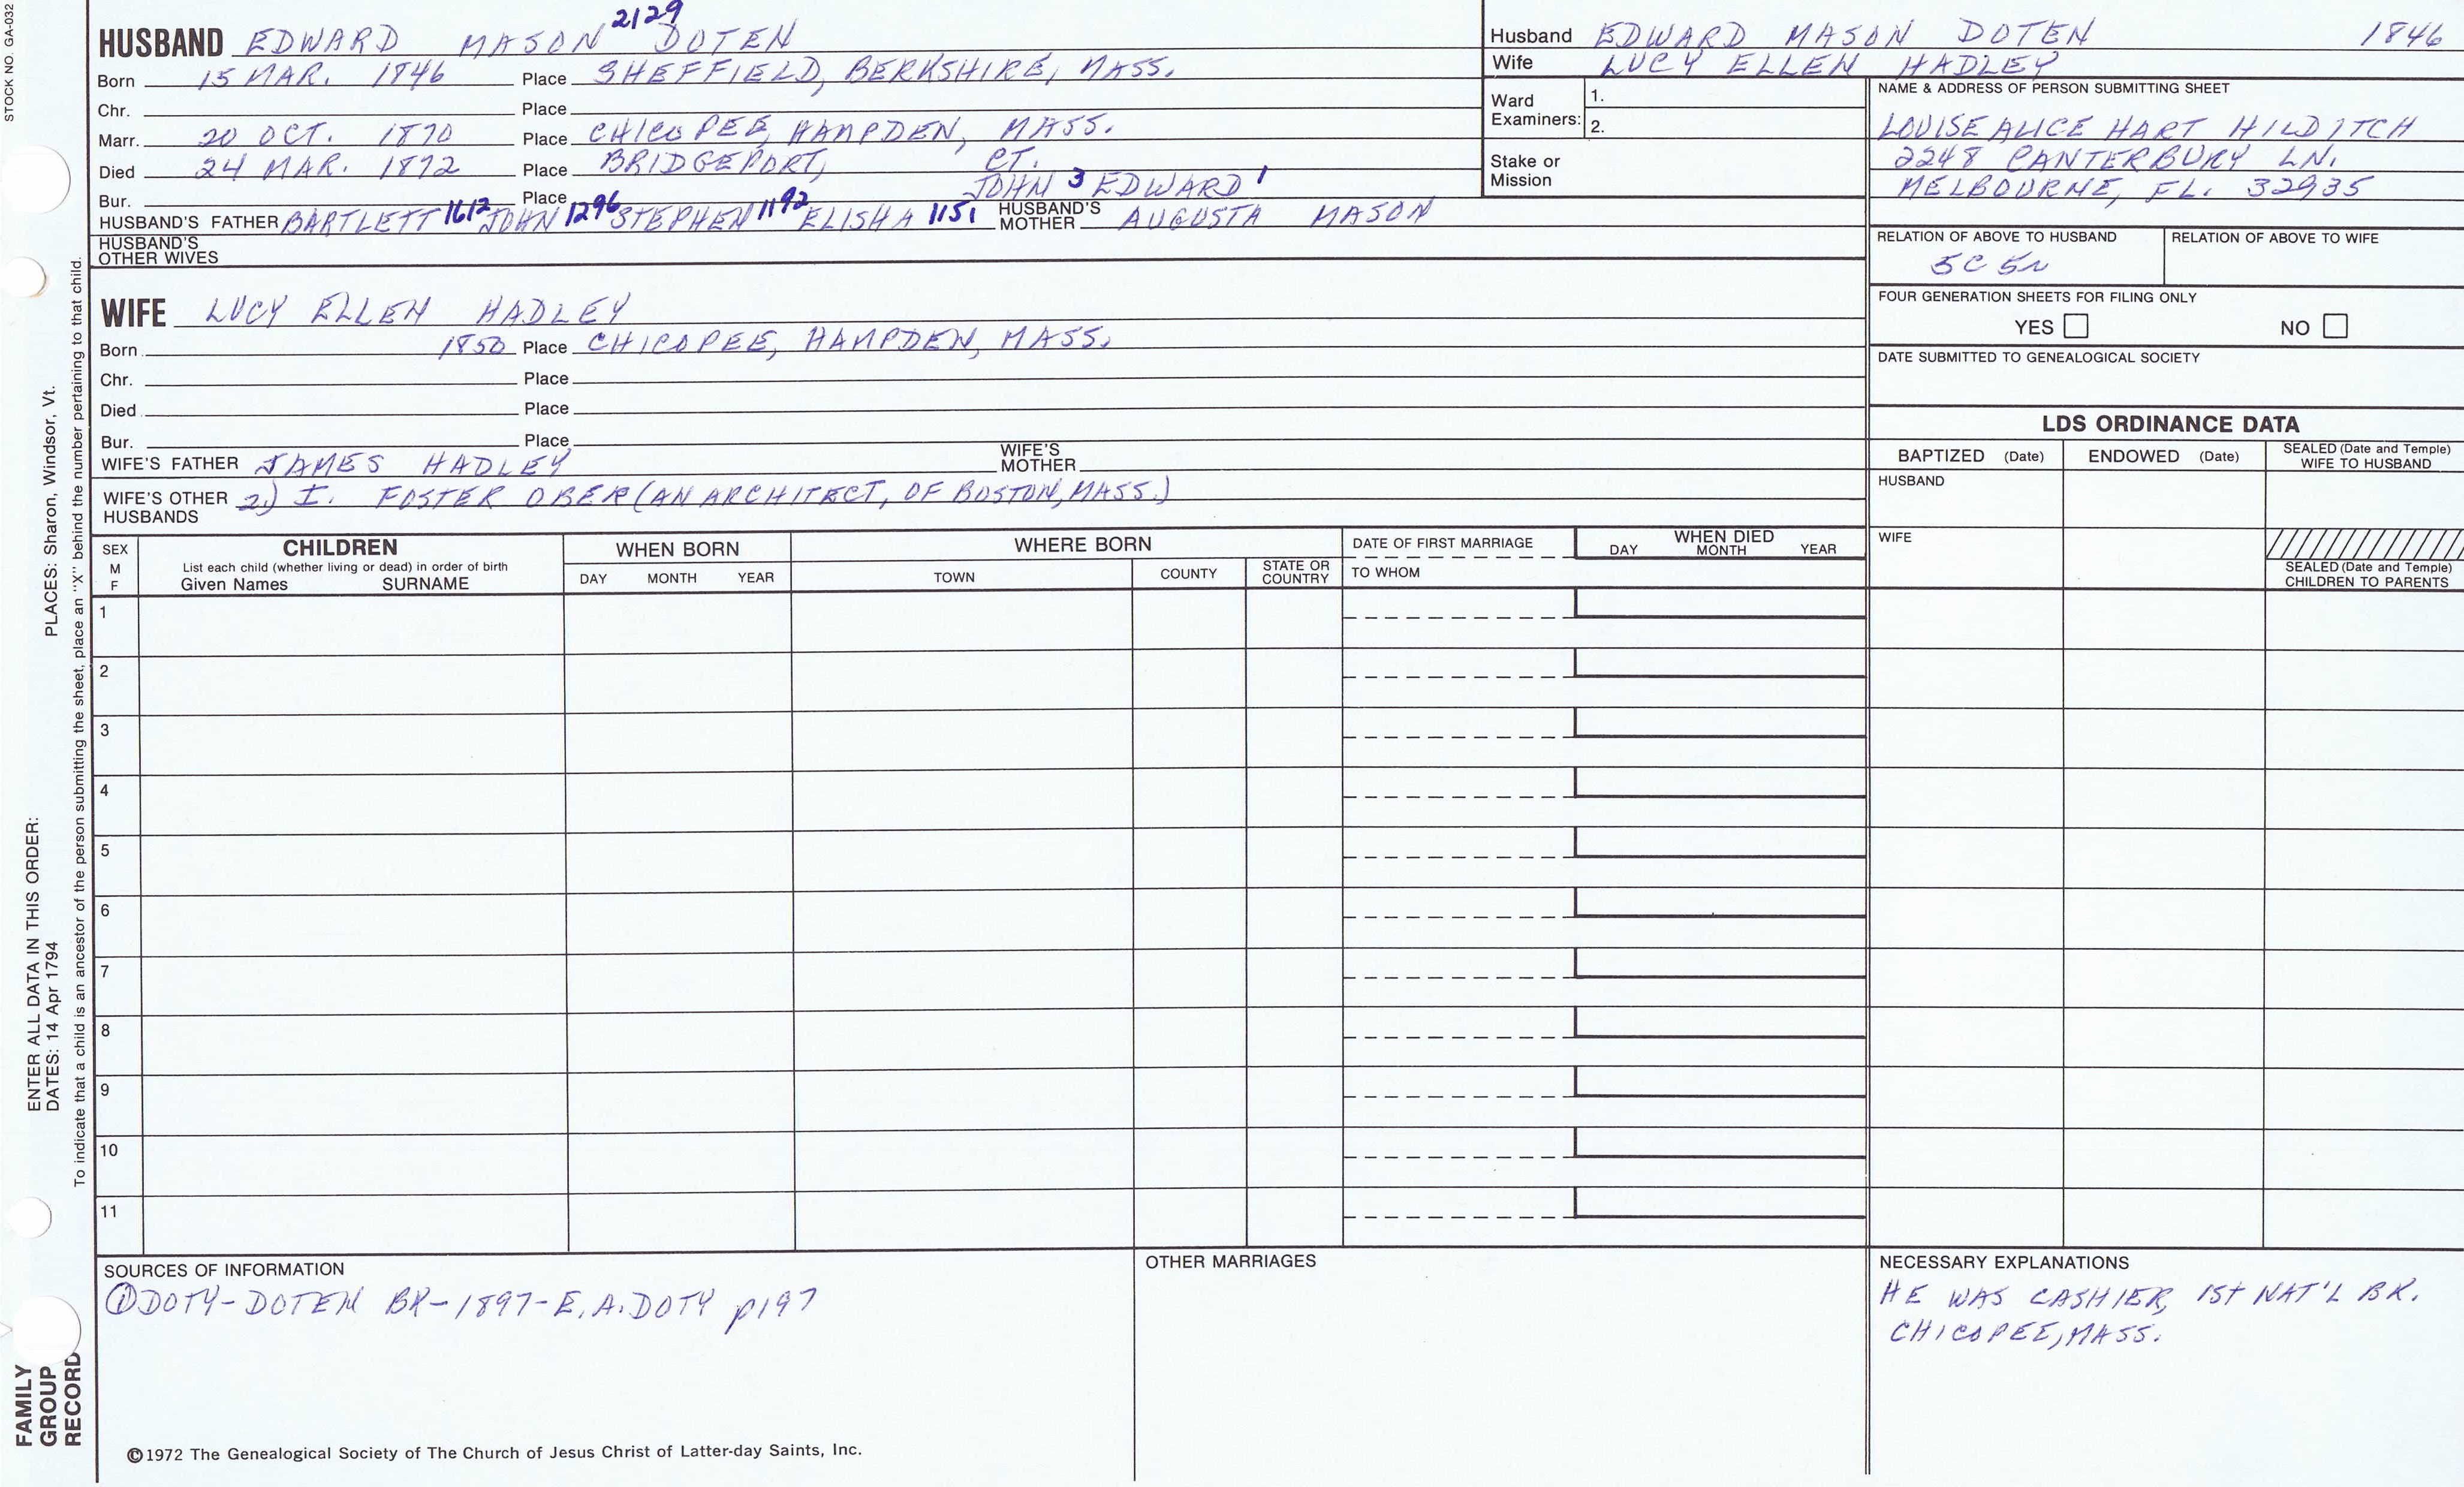 STOCK NO. GA-032
2129
HUSBAND EDWARD MASON DOTEN
Born 15 MAR. 1846 Place SHEFFIELD, BERKSHIRE, MASS.
Chr. Place
Marr. 20 OCT. 1870 Place CHICOPEE, HAMPDEN, MASS.
Died 24 MAR. 1872 Place BRIDGEPORT, CT.
Bur. Place JOHN 3 EDWARD 1
HUSBAND'S FATHER BARTLETT 1612 JOHN 1296 STEPHEN 1192 ELISHA 1151 HUSBAND'S MOTHER AUGUSTA MASON
HUSBAND'S OTHER WIVES
WIFE LUCY ELLEN HADLEY
Born 1850 Place CHICOPEE, HAMPDEN, MASS.
Chr. Place
Died Place
Bur. Place
WIFE'S FATHER JAMES HADLEY WIFE'S MOTHER
WIFE'S OTHER HUSBANDS 2.) I. FOSTER OBER (AN ARCHITECT, OF BOSTON, MASS.)
Husband EDWARD MASON DOTEN 1846
Wife LUCY ELLEN HADLEY
Ward Examiners: 1.
2.
Stake or Mission
NAME & ADDRESS OF PERSON SUBMITTING SHEET
LOUISE ALICE HART HILDITCH
2248 CANTERBURY LN.
MELBOURNE, FL. 32935
RELATION OF ABOVE TO HUSBAND RELATION OF ABOVE TO WIFE
5C 5R
FOUR GENERATION SHEETS FOR FILING ONLY
YES NO
DATE SUBMITTED TO GENEALOGICAL SOCIETY
LDS ORDINANCE DATA
BAPTIZED (Date) ENDOWED (Date) SEALED (Date and Temple) WIFE TO HUSBAND
HUSBAND
WIFE
SEALED (Date and Temple) CHILDREN TO PARENTS
SEX M F
CHILDREN
List each child (whether living or dead) in order of birth
Given Names SURNAME
WHEN BORN
DAY MONTH YEAR
WHERE BORN
TOWN COUNTY STATE OR COUNTRY
DATE OF FIRST MARRIAGE
TO WHOM
WHEN DIED
DAY MONTH YEAR
1
2
3
4
5
6
7
8
9
10
11
SOURCES OF INFORMATION
① DOTY-DOTEN BK-1897-E.A. DOTY p197
OTHER MARRIAGES
NECESSARY EXPLANATIONS
HE WAS CASHIER, 1st NAT'L BK.
CHICOPEE, MASS.
©1972 The Genealogical Society of The Church of Jesus Christ of Latter-day Saints, Inc.
FAMILY GROUP RECORD
ENTER ALL DATA IN THIS ORDER:
DATES: 14 Apr 1794
PLACES: Sharon, Windsor, Vt.
To indicate that a child is an ancestor of the person submitting the sheet, place an "X" behind the number pertaining to that child.